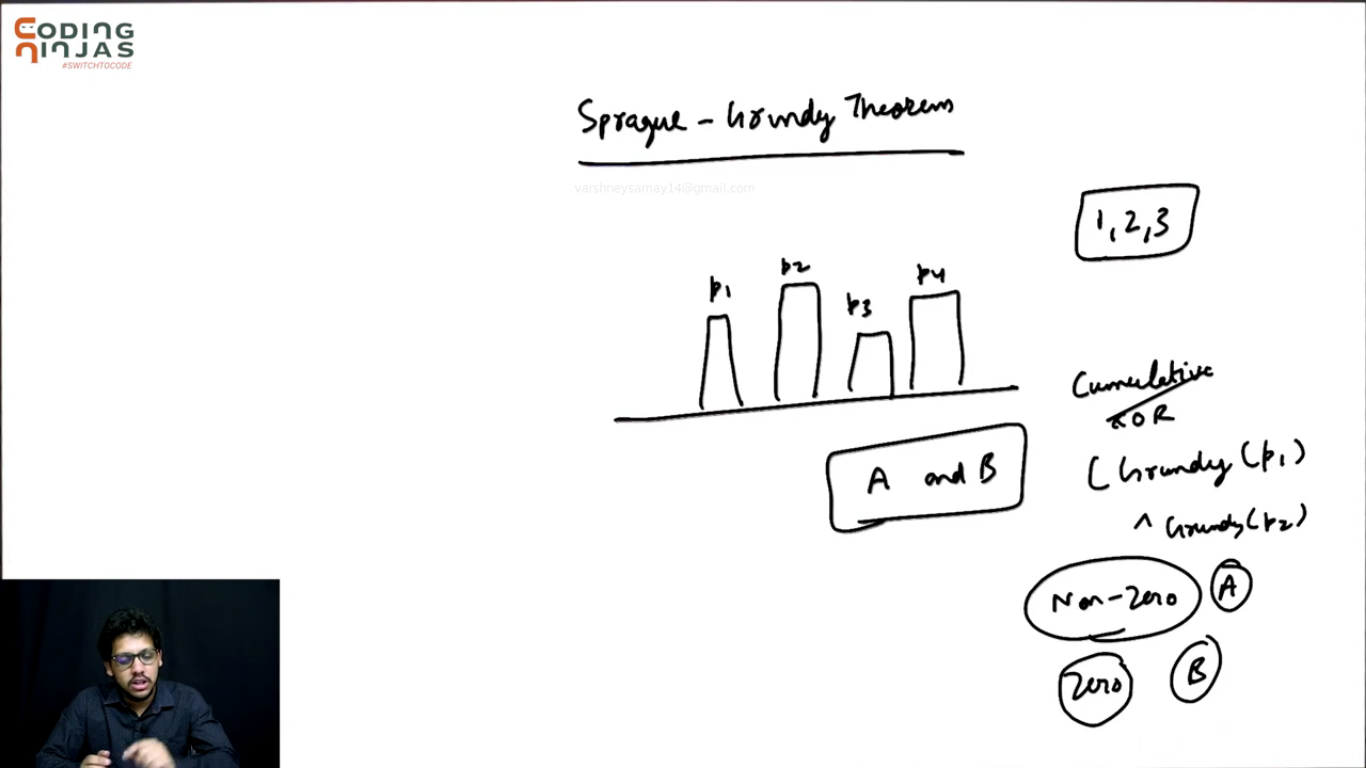 CODING
NINJAS
#SWITCHTOCODE
Sprague - Grundy Theorem
varshneysamay14@gmail.com
1, 2, 3
p1 p2 p3 p4
Cumulative
XOR
A and B
( Grundy (p1)
^ Grundy (p2)
Non-Zero A
Zero B